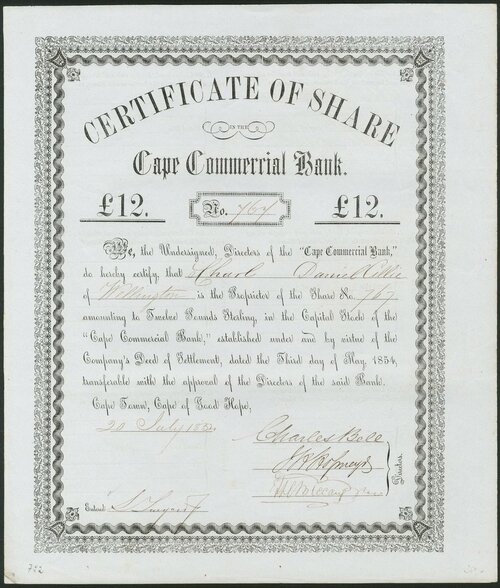 CERTIFICATE OF SHARE
IN THE
Cape Commercial Bank.
£12. No. 767 £12.
We, the Undersigned, Directors of the "Cape Commercial Bank,"
do hereby certify, that Charl Daniel Cillie
of Wellington is the Proprietor of the Share No. 767
amounting to Twelve Pounds Sterling, in the Capital Stock of the
"Cape Commercial Bank," established under and by virtue of the
Company's Deed of Settlement, dated the Third day of May, 1854,
transferable with the approval of the Directors of the said Bank.
Cape Town, Cape of Good Hope,
20 July
Charles Bell
Hofmeyr
Directors.
Entered
722